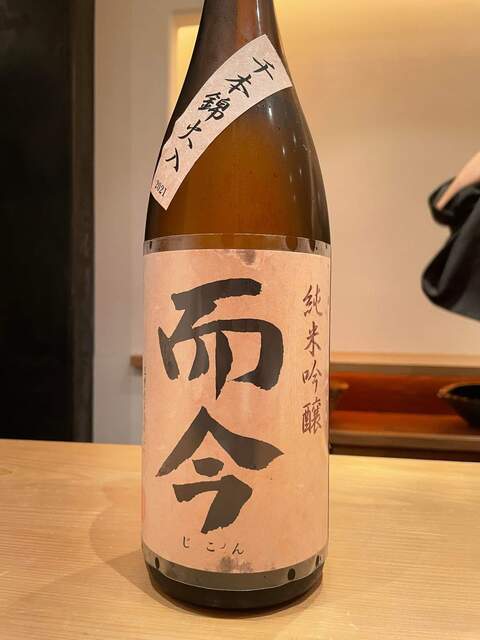 千本錦火入
2021
純米吟醸
而今
じこん